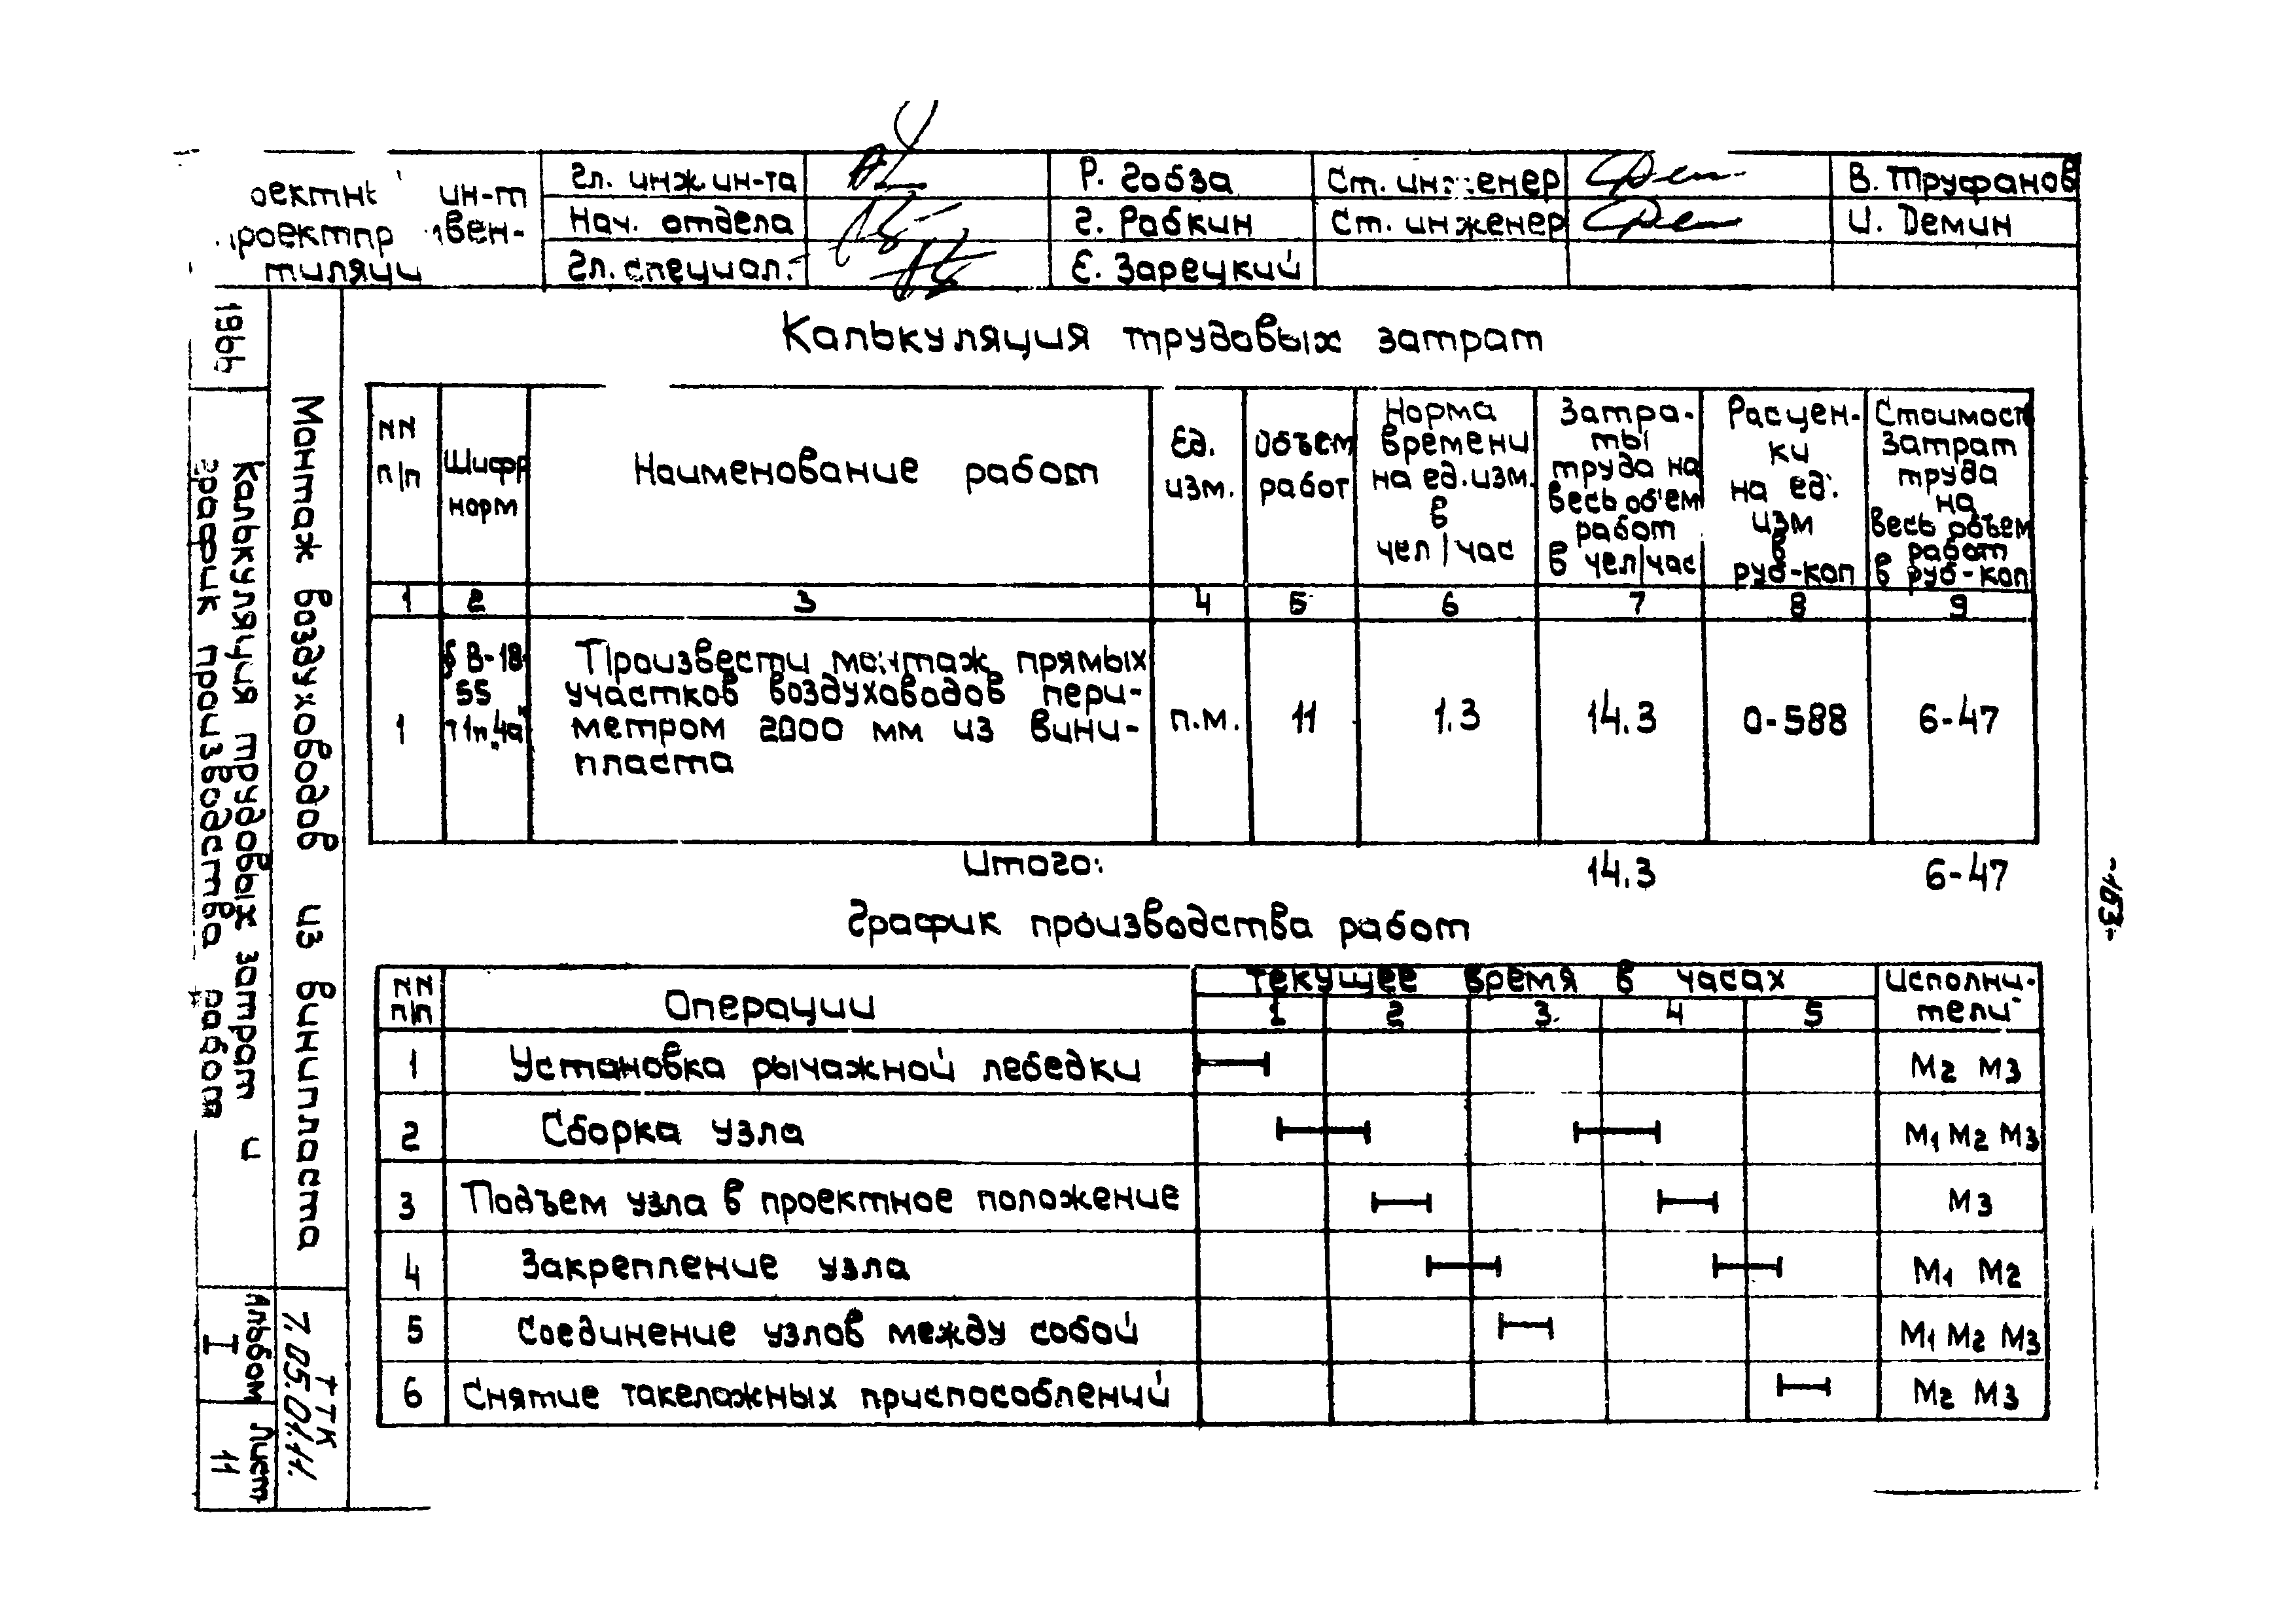 ин-т
тиляци
Гл. инж. ин-та Р. Гобза Ст. инженер В. Труфанов
Нач. отдела Г. Рабкин Ст. инженер И. Демин
Гл. специал. Е. Зарецкий
1966
Калькуляция трудовых затрат и
график производства работ
Монтаж воздуховодов из винипласта
Альбом
I
Лист
11
ТТК
7.05.01.11.
Калькуляция трудовых затрат
NN
п/п
Шифр
норм
Наименование работ
Ед.
изм.
Объем
работ
Норма
времени
на ед. изм.
в
чел/час
Затра-
ты
труда на
весь об'ем
работ
в чел/час
Расцен-
ки
на ед.
изм
в
руб-коп
Стоимость
затрат
труда
на
весь объем
работ
в руб-коп
1 2 3 4 5 6 7 8 9
1
§ 8-18-
55
т1п.4а
Произвести монтаж прямых
участков воздуховодов пери-
метром 2000 мм из вини-
пласта
п.м. 11 1.3 14.3 0-588 6-47
Итого: 14.3 6-47
График производства работ
NN
п/п
Операции
Текущее время в часах
1 2 3 4 5
Исполни-
тели
1 Установка рычажной лебедки М2 М3
2 Сборка узла М1 М2 М3
3 Подъем узла в проектное положение М3
4 Закрепление узла М1 М2
5 Соединение узлов между собой М1 М2 М3
6 Снятие такелажных приспособлений М2 М3
-163-